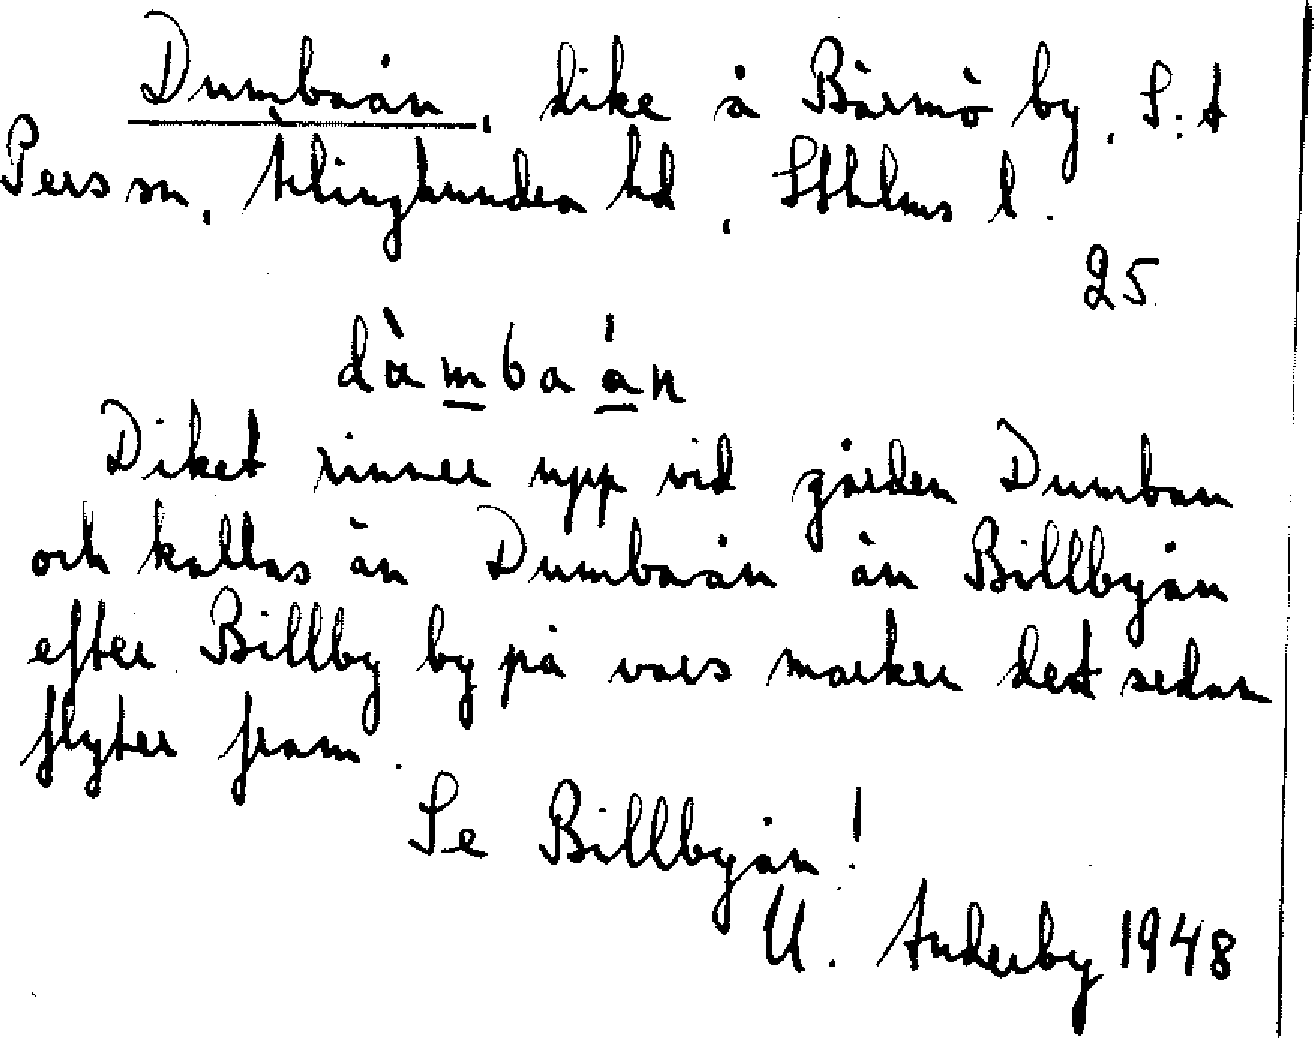 Dumbaån, dike å Bärmö by, S:t
Pers sn, Ærlinghundra hd, Sthlms l.
25
dàmbaán
Diket rinner upp vid gården Dumban
och kallas än Dumbaån än Billbyån
efter Billby by på vars marker det sedan
flyter fram.
Se Billbyån!
U. Anderby 1948